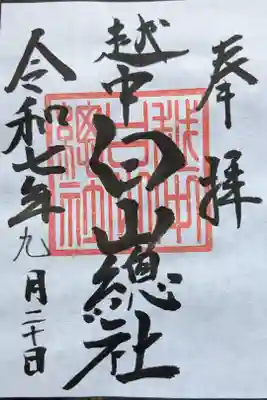 奉拝
越中白山總社
令和七年九月二十日
越中白山總社